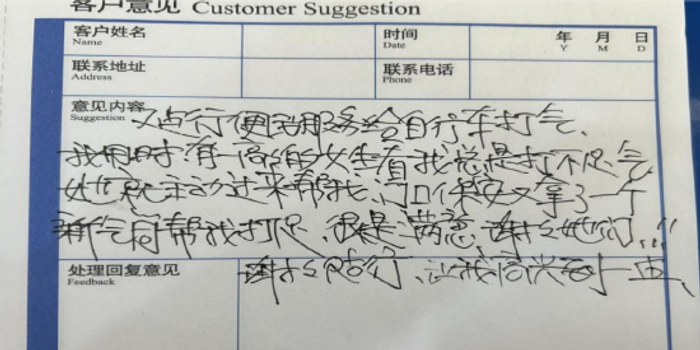 客户意见 Customer Suggestion
客户姓名 时间 年 月 日
Name Date Y M D
联系地址 联系电话
Address Phone
意见内容
Suggestion
行便民服务给自行车打气、
我用时有一高的女生看我总是打不足气
她就主动过来帮我、门口保安又拿了一个
新气筒帮我打足、很是满意、谢谢她们、!!
处理回复意见
Feedback
谢谢